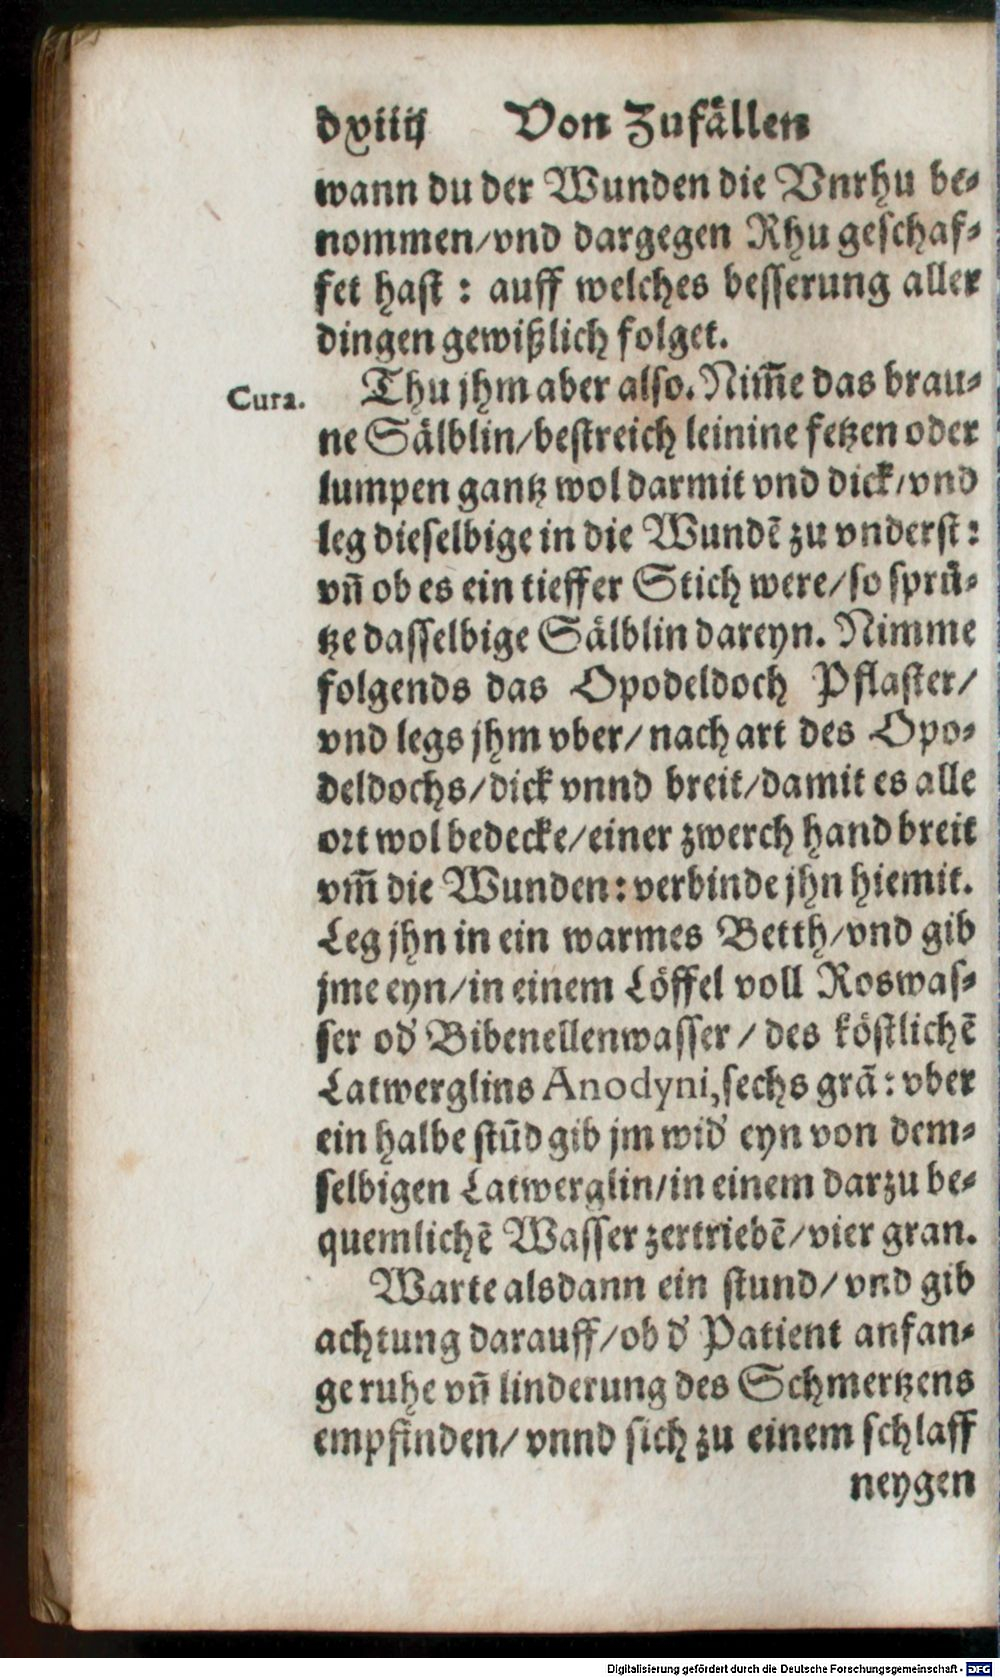 dxiiij Von Zufällen
wann du der Wunden die Vnrhu be⸗
nommen/vnd dargegen Rhu geschaf⸗
fet hast : auff welches besserung aller
dingen gewißlich folget.
Cura. Thu jhm aber also. Nim̃e das brau⸗
ne Sälblin/bestreich leinine fetzen oder
lumpen gantz wol darmit vnd dick/vnd
leg dieselbige in die Wundẽ zu vnderst:
vñ ob es ein tieffer Stich were/so sprü⸗
tze dasselbige Sälblin dareyn. Nimme
folgends das Opodeldoch Pflaster/
vnd legs jhm vber/nach art des Opo⸗
deldochs/dick vnnd breit/damit es alle
ort wol bedecke/einer zwerch hand breit
vm̃ die Wunden: verbinde jhn hiemit.
Leg jhn in ein warmes Betth/vnd gib
jme eyn/in einem Löffel voll Roswas⸗
ser od' Bibenellenwasser / des köstlichẽ
Latwerglins Anodyni, sechs grã: vber
ein halbe stũd gib jm wid' eyn von dem⸗
selbigen Latwerglin/in einem darzu be⸗
quemlichẽ Wasser zertriebẽ/vier gran.
Warte alsdann ein stund/vnd gib
achtung darauff/ob d' Patient anfan⸗
ge ruhe vñ linderung des Schmertzens
empfinden/vnnd sich zu einem schlaff
neygen
Digitalisierung gefördert durch die Deutsche Forschungsgemeinschaft - DFG